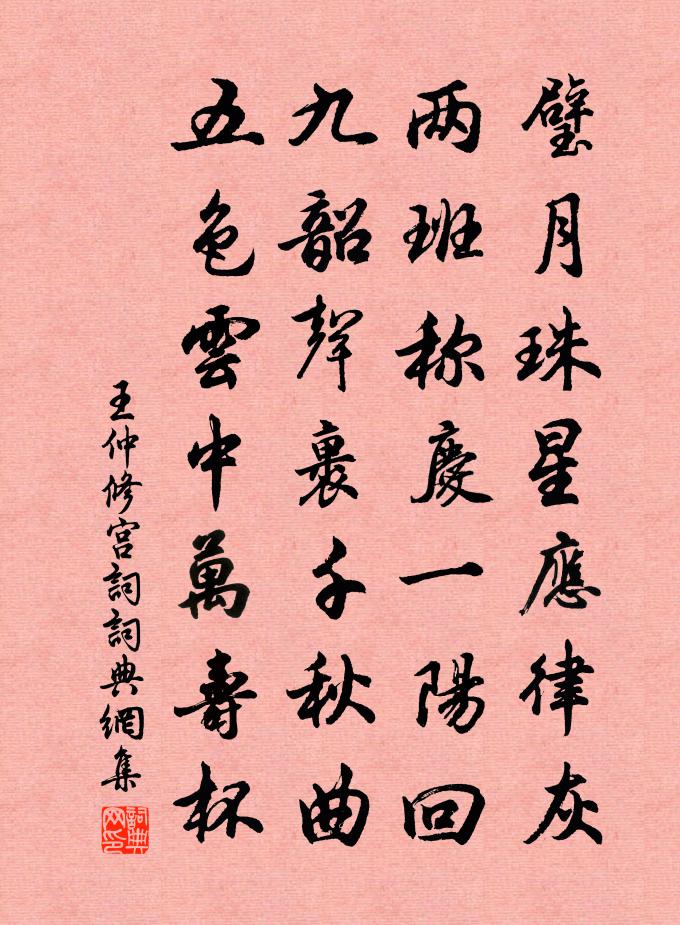 璧月珠星應律灰
两班称慶一陽回
九韶聲裏千秋曲
五色雲中萬壽杯
王仲修宫詞詞典網集
詞典网印